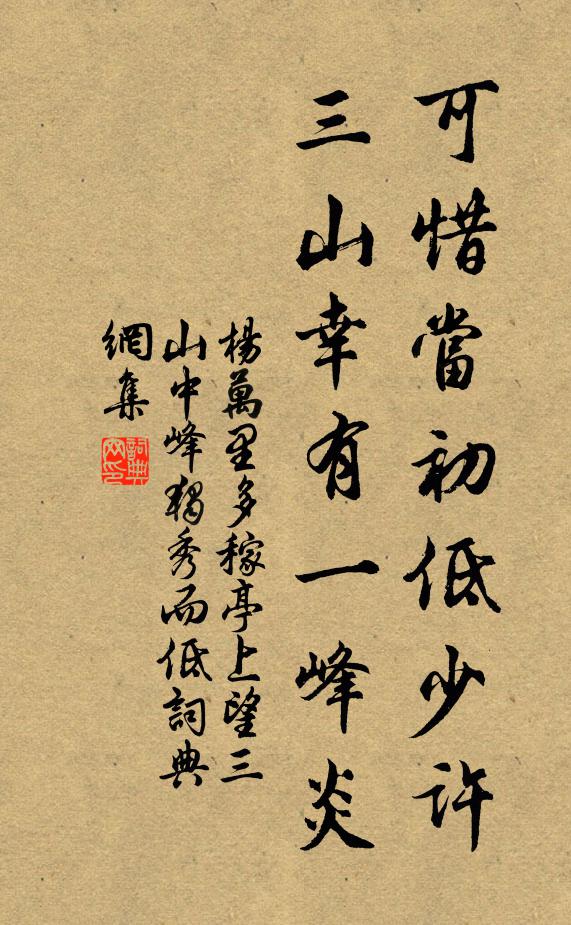 可惜當初低少許
三山幸有一峰炎
楊萬里多稼亭上望三
山中峰獨秀而低詞典
網集
詞典
网印